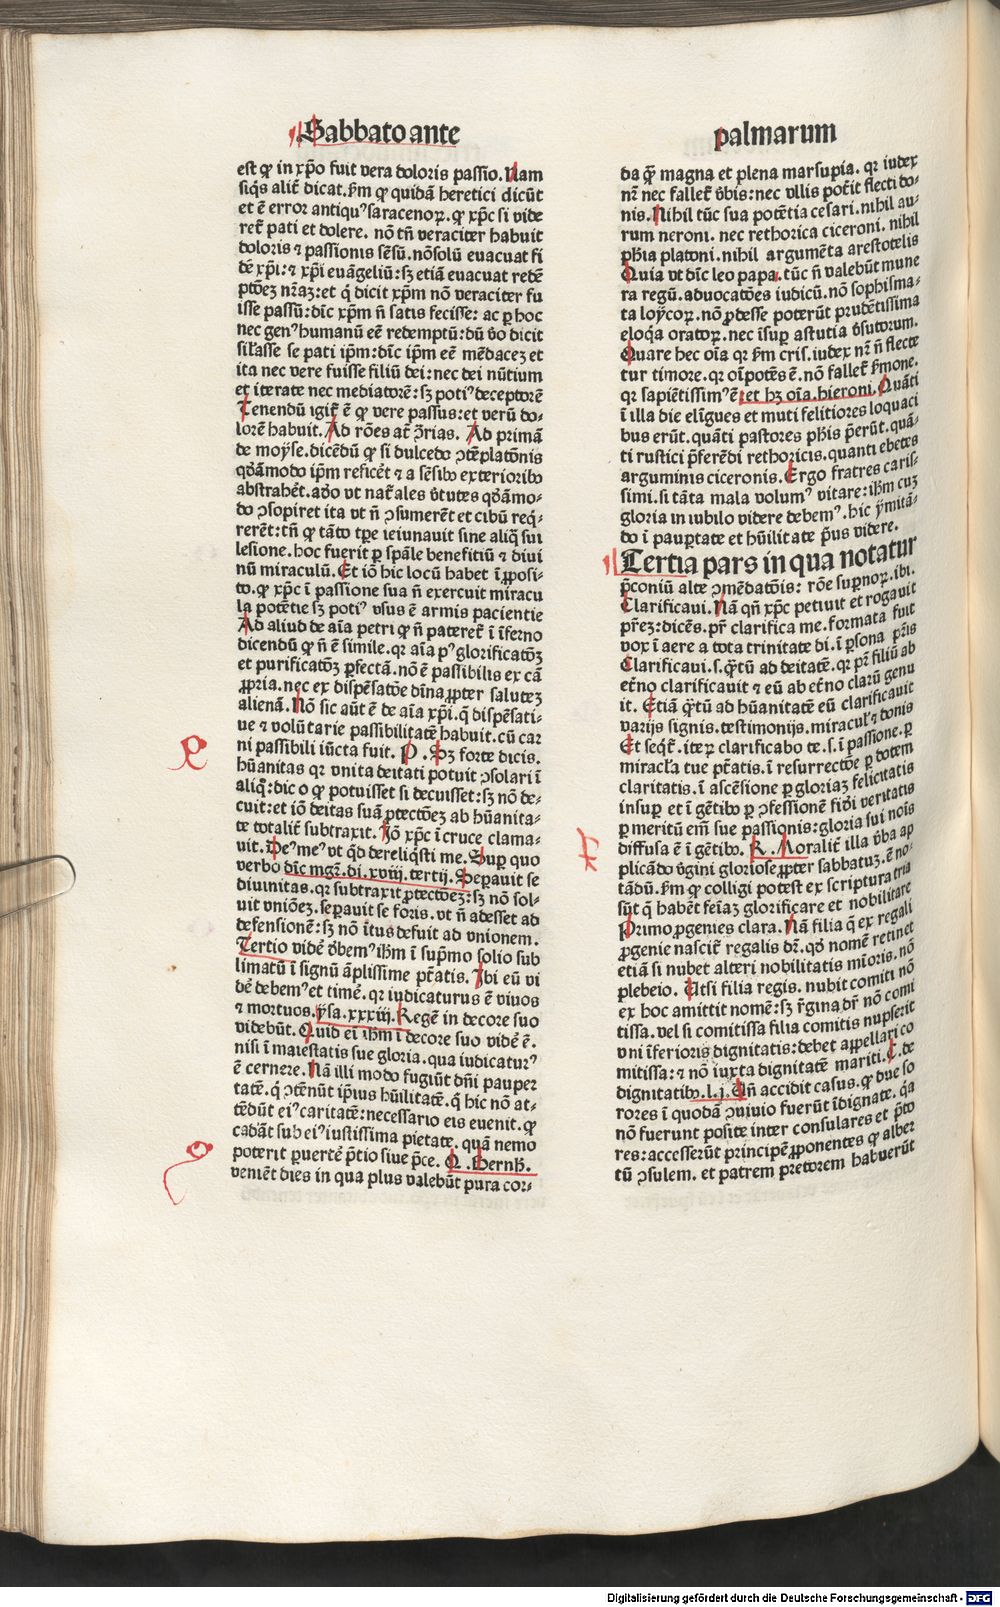 Sabbato ante
est ꝙ in xp̄o fuit vera doloris passio. Nam
siq̄s alit̄ dicat. p̄m ꝙ quidā heretici dicūt
et ē error antiqu⁹ saracenoꝝ. ꝙ xp̄c si vide
ret̄ pati et dolere. nō tn̄ veraciter habuit
doloris ⁊ passionis sēsū. nōsolū euacuat fi
dē xp̄i: ⁊ xp̄i euāgeliū: sꝫ etiā euacuat redē
ptōeꝫ nr̄aꝫ: et q̄ dicit xp̄m nō veraciter fu
isse passū: dīc xp̄m n̄ satis fecisse: ac ꝑ hoc
nec gen⁹ humanū eē redemptū: dū v̄o dicit
sil̄asse se pati ip̄m: dīc ip̄m eē mēdaceꝫ et
ita nec vere fuisse filiū dei: nec dei nūtium
et iterate nec mediatorē: sꝫ poti⁹ deceptorē
Tenendū igit̄ ē ꝙ vere passus: et verū do⸗
lorē habuit. Ad rōes at̄ ꝯ̄rias. Ad primā
de moyse. dicēdū ꝙ si dulcedo ꝯtēplatōnis
qd̄āmodo ip̄m reficēt ⁊ a sēsibꝰ exterioribꝰ
abstrahēt. adō vt nat̄ales v̄tutes qd̄āmo⸗
do ꝯsopiret ita vt n̄ ꝯsumerēt et cibū req̄⸗
rerēt: tn̄ ꝙ tāto tꝑe ieiunauit sine aliq̄ sui
lesione. hoc fuerit ꝑ spāle benefitiū ⁊ diui
nū miraculū. Et iō hic locū habet ī ꝓposi⸗
to. ꝙ xp̄c ī passione sua n̄ exercuit miracu
la potētie sꝫ poti⁹ vsus ē armis pacientie
Ad aliud de aīa petri ꝙ n̄ pateret̄ ī īferno
dicendū ꝙ n̄ ē simile. qr aīa p⁹ glorificatōꝫ
et purificatōꝫ ꝑfectā. nō ē passibilis ex cā
ꝓpria. nec ex dispēsatōe dīna ꝓpter saluteꝫ
alienā. Nō sic aūt ē de aīa xp̄i. q̄ dispēsati⸗
ue ⁊ volūtarie passibilitatē habuit. cū car
ni passibili iūcta fuit. P. Sꝫ forte dicis.
hūanitas qr vnita deitati potuit ꝯsolari ī
aliq̄: dic o ꝙ potuisset si decuisset: sꝫ nō de⸗
cuit: et iō deitas suā ꝓtectōeꝫ ab hūanita⸗
te totalit̄ subtraxit. Iō xp̄c ī cruce clama⸗
uit. De⁹ me⁹ vt qd dereliq̄sti me. Suꝑ quo
verbo dīc mgr̄. di. xviij. tertij. Seꝑauit se
diuinitas. qr subtraxit ꝓtectōeꝫ: sꝫ nō sol⸗
uit vniōeꝫ. seꝑauit se foris. vt n̄ adesset ad
defensionē: sꝫ nō ītus defuit ad vnionem.
Tertio vidē d̄bem⁹ ih̄m ī sup̄mo solio sub
limatū ī signū āplissime pt̄atis. Ibi eū vi
dē debem⁹ et timē. qr iudicaturus ē viuos
⁊ mortuos. ysa. xxxiij. Regē in decore suo
videbūt. Quid ei⁹ ih̄m ī decore suo vidē ē.
nisi ī maiestatis sue gloria. qua iudicatur⁹
ē cernere. Nā illi modo fugiūt dn̄i pauper
tatē. q̄ ꝯtēnūt ip̄ius hūilitatē. q̄ hic nō at⸗
tēdūt ei⁹ caritatē: necessario eis euenit. ꝙ
cadāt sub ei⁹ iustissima pietate. quā nemo
poterit ꝑuertē p̄tio siue p̄ce. Q. Bernh̄.
veniēt dies in qua plus valebūt pura cor⸗
palmarum
da ꝙ̄ magna et plena marsupia. qr iudex
nr̄ nec fallet̄ v̄bis: nec vllis pot̄it flecti do⸗
nis. Nihil tūc sua potētia cesari. nihil au⸗
rum neroni. nec rethorica ciceroni. nihil
ph̄ia platoni. nihil argumēta arestotelis
Quia vt dīc leo papa. tūc n̄ valebūt mune
ra regū. aduocatōes iudicū. nō sophisma⸗
ta loycoꝝ. nō ꝓdesse poterūt prudētissima
eloq̄a oratoꝝ. nec īsuꝑ astutia v̄sutorum.
Quare hec oīa qr p̄m cris. iudex nr̄ n̄ flecte
tur timore. qr oīpotēs ē. nō fallet̄ p̄mone.
qr sapiētissim⁹ ē: et hꝫ oīa. hieroni. Quāti
ī illa die elīgues et muti felitiores loquaci
bus erūt. quāti pastores ph̄is p̄erūt. quā⸗
ti rustici p̄ferēdi rethoricis. quanti ebetes
arguminis ciceronis. Ergo fratres caris⸗
simi. si tāta mala volum⁹ vitare: ih̄m cuꝫ
gloria in iubilo videre debem⁹. hic ȳmitā⸗
do ī pauꝑtate et hūilitate p̄us videre.
Tertia pars in qua notatur
p̄coniū alte ꝯmēdatōis: rōe suꝑnoꝝ. ibi.
Clarificaui. Nā qn̄ xp̄c petiuit et rogauit
pr̄eꝫ: dicēs. pr̄ clarifica me. formata fuit
vox ī aere a tota trinitate di. ī ꝑsona pr̄is
Clarificaui. s. q̄tū ad deitatē. qr pr̄ filiū ab
et̄no clarificauit ⁊ eū ab et̄no clarū genu
it. Etiā q̄tū ad hūanitatē eū clarificauit
varijs signis. testimonijs. miracul̄ ⁊ donis
Et seqt̄. iteꝝ clarificabo te. s. ī passione. ꝑ
miracl̄a tue pt̄atis. ī resurrectōe ꝑ dotem
claritatis. ī ascēsione ꝑ gloriaꝫ felicitatis
insuꝑ et ī gētibꝰ ꝑ ꝯfessionē fidei veritatis
ꝑ meritū em̄ sue passionis: gloria sui nois
diffusa ē ī gētibꝰ. R. Moralit̄ illa v̄ba ap
plicādo v̄gini gloriose ꝓpter sabbatuꝫ. ē no⸗
tādū. p̄m ꝙ colligi potest ex scriptura tria
sūt q̄ habēt feīaꝫ glorificare et nobilitare
Primo ꝓgenies clara. Nā filia q̄ ex regali
ꝓgenie nascit̄ regalis dr̄. qd̄ nomē retinet
etiā si nubet alteri nobilitatis mīoris. nō
plebeio. Etsi filia regis. nubit comiti nō
ex hoc amittit nomē: sꝫ r̄gina dr̄ nō comi
tissa. vel si comitissa filia comitis nupserit
vni īferioris dignitatis: debet appellari co
mitissa: ⁊ nō iuxta dignitatē mariti. C. de
dignitatibꝰ. l. j. Qn̄ accidit casus. ꝙ due so
rores ī quodā ꝯuiuio fuerūt īdignate. q̄a
nō fuerunt posite inter consulares et p̄to
res: accesserūt principē ꝓponentes ꝙ alber
tū ꝯsulem. et patrem pretorem habuerūt
Digitalisierung gefördert durch die Deutsche Forschungsgemeinschaft - DFG